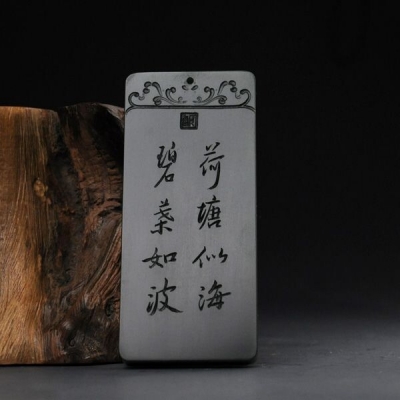 荷塘似海
碧葉如波